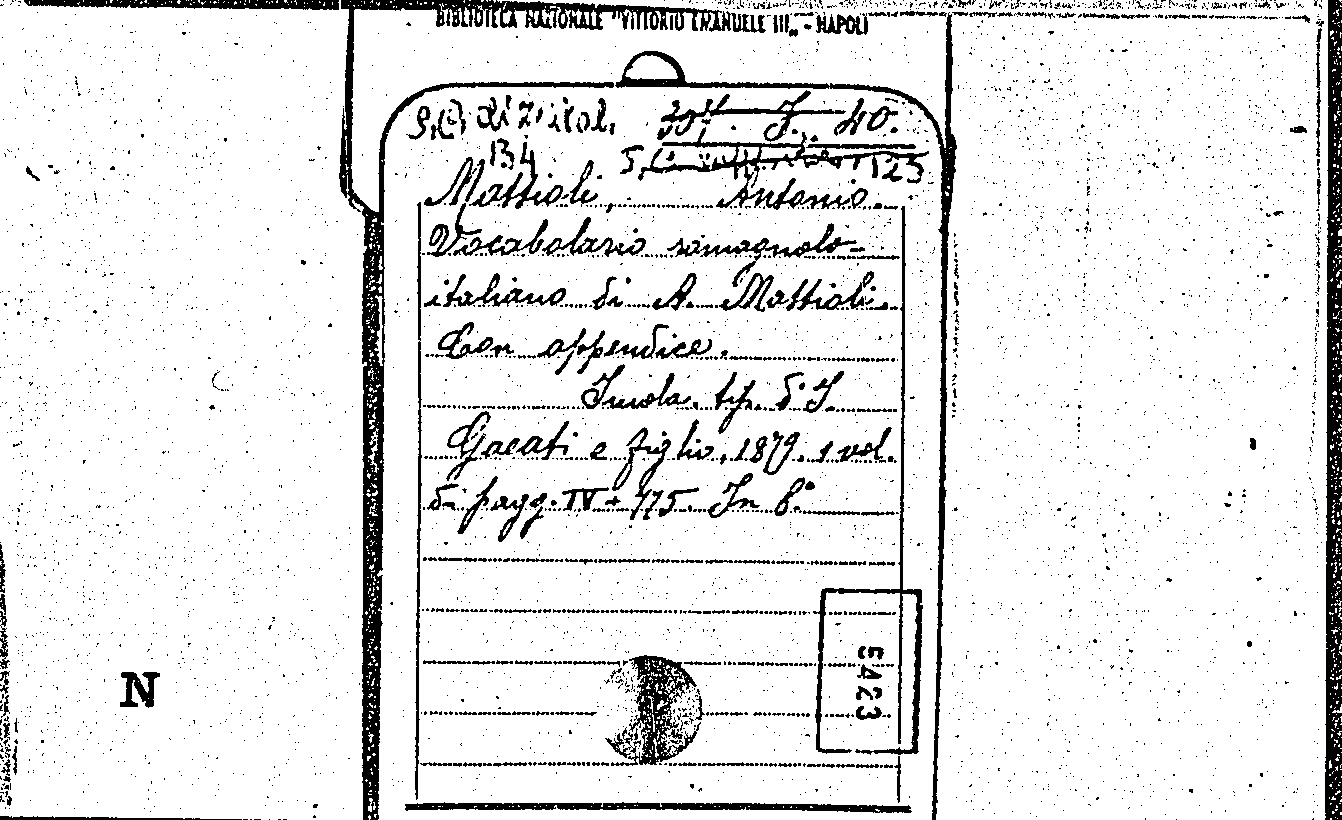 BIBLIOTECA NAZIONALE "VITTORIO EMANUELE III„ - NAPOLI
S.C. diz. ital. 307. J. 40.
134 S.C. 123
Mattioli, Antonio.
Vocabolario romagnolo-
italiano di A. Mattioli.
Con appendice.
Imola. tip. d'I.
Galeati e figlio, 1879. 1 vol.
di pagg. IV + 775. In 8.°
5423
N